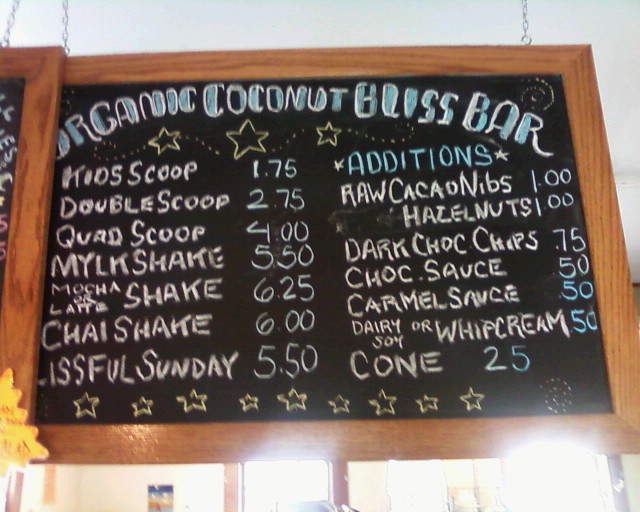 ORGANIC COCONUT BLISS BAR
KIDS SCOOP 1.75
DOUBLE SCOOP 2.75
QUAD SCOOP 4.00
MYLKSHAKE 5.50
MOCHA OR LATTE SHAKE 6.25
CHAI SHAKE 6.00
LISSFUL SUNDAY 5.50
*ADDITIONS*
RAW CACAO NIBS 1.00
HAZELNUTS 1.00
DARK CHOC CHIPS .75
CHOC. SAUCE .50
CARMEL SAUCE .50
DAIRY OR SOY WHIPCREAM .50
CONE 25